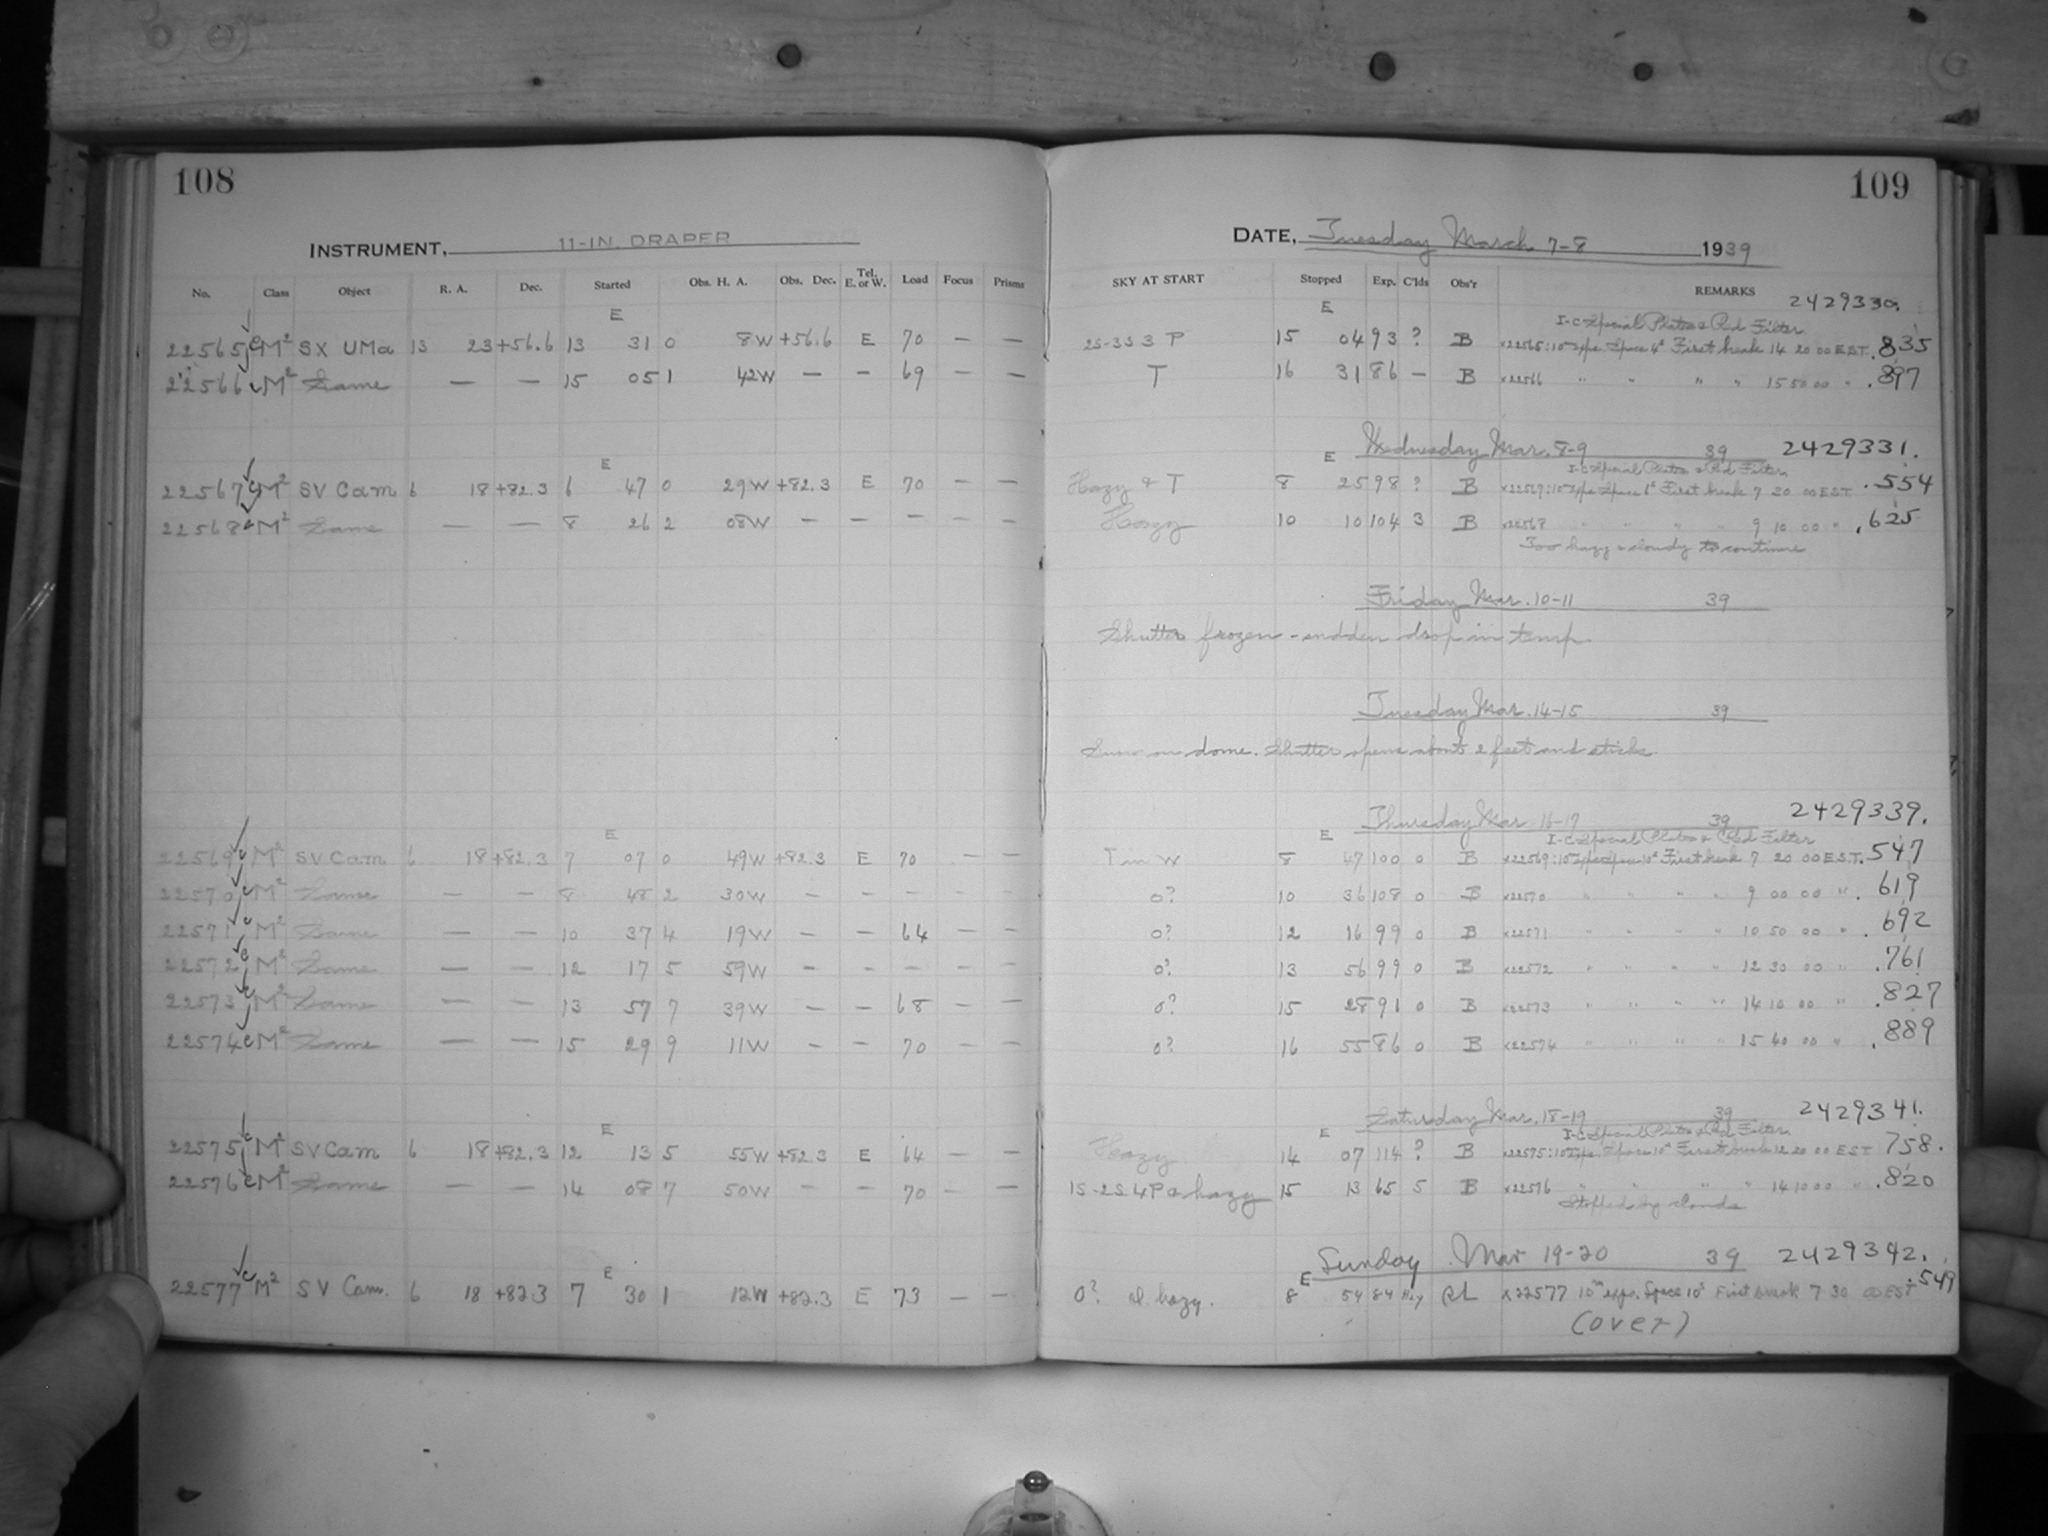 108
INSTRUMENT, 11-IN. DRAPER
No. Class Object R. A. Dec. Started Obs. H. A. Obs. Dec. Tel. E. or W. Load Focus Prisms
E
22565 M² SX UMa 13 23 +56.6 13 31 0 8W +56.6 E 70 — —
22566 M² Same — — 15 05 1 42W — — 69 — —
E
22567 M² SV Cam 6 18 +82.3 6 47 0 29W +82.3 E 70 — —
22568 M² Same — — 8 26 2 08W — — — — —
E
22569 M² SV Cam 6 18 +82.3 7 07 0 49W +82.3 E 70 — —
22570 M² Same — — 8 48 2 30W — — — — —
22571 M² Same — — 10 37 4 19W — — 64 — —
22572 M² Same — — 12 17 5 59W — — — — —
22573 M² Same — — 13 57 7 39W — — 68 — —
22574 M² Same — — 15 29 9 11W — — 70 — —
E
22575 M² SV Cam 6 18 +82.3 12 13 5 55W +82.3 E 64 — —
22576 M² Same — — 14 08 7 50W — — 70 — —
E
22577 M² SV Cam. 6 18 +82.3 7 30 1 12W +82.3 E 73 — —
109
DATE, Tuesday March 7-8 1939
SKY AT START Stopped Exp. C'lds Obs'r REMARKS 2429330.
E I-C Special Plates & Red Filter
2S-3S 3 P 15 04 93 ? B x22565: 10 Exps. Space 4ˢ First break 14 20 00 EST. .835
T 16 31 86 — B x22566 " " " " 15 50 00 " .897
E Wednesday Mar. 8-9 39 2429331.
I-C Special Plates & Red Filter
Hazy & T 8 25 98 ? B x22567: 10 Exps Space First break 7 20 00 EST. .554
Hazy 10 10 104 3 B x22568 " " " " 9 10 00 " .625
Too hazy & cloudy to continue
Friday Mar. 10-11 39
Shutter frozen - sudden drop in temp
Tuesday Mar. 14-15 39
Snow on dome. Shutter opens about 2 feet and sticks.
E Thursday Mar. 16-17 39 2429339.
I-C Special Plates & Red Filter
T in W 8 47 100 0 B x22569: 10 Exps Space 10ˢ First break 7 20 00 EST. .547
0? 10 36 108 0 B x22570 " " " " 9 00 00 " .619
0? 12 16 99 0 B x22571 " " " " 10 50 00 " .692
0? 13 56 99 0 B x22572 " " " " 12 30 00 " .761
0? 15 28 91 0 B x22573 " " " " 14 10 00 " .827
0? 16 55 86 0 B x22574 " " " " 15 40 00 " .889
E Saturday Mar. 18-19 39 2429341.
I-C Special Plates & Red Filter.
Hazy 14 07 114 ? B x22575: 10 Exps. Space 10ˢ First break 12 20 00 EST 758.
1S-2S 4P & hazy 15 13 65 5 B x22576 " " " " 14 10 00 " .820
Stopped by clouds
E Sunday Mar 19-20 39 2429342.
0? sl. hazy. 8 54 84 Hzy RL x22577 10ᵐ exps. Space 10ˢ First break 7 30 00 EST .549
(over)